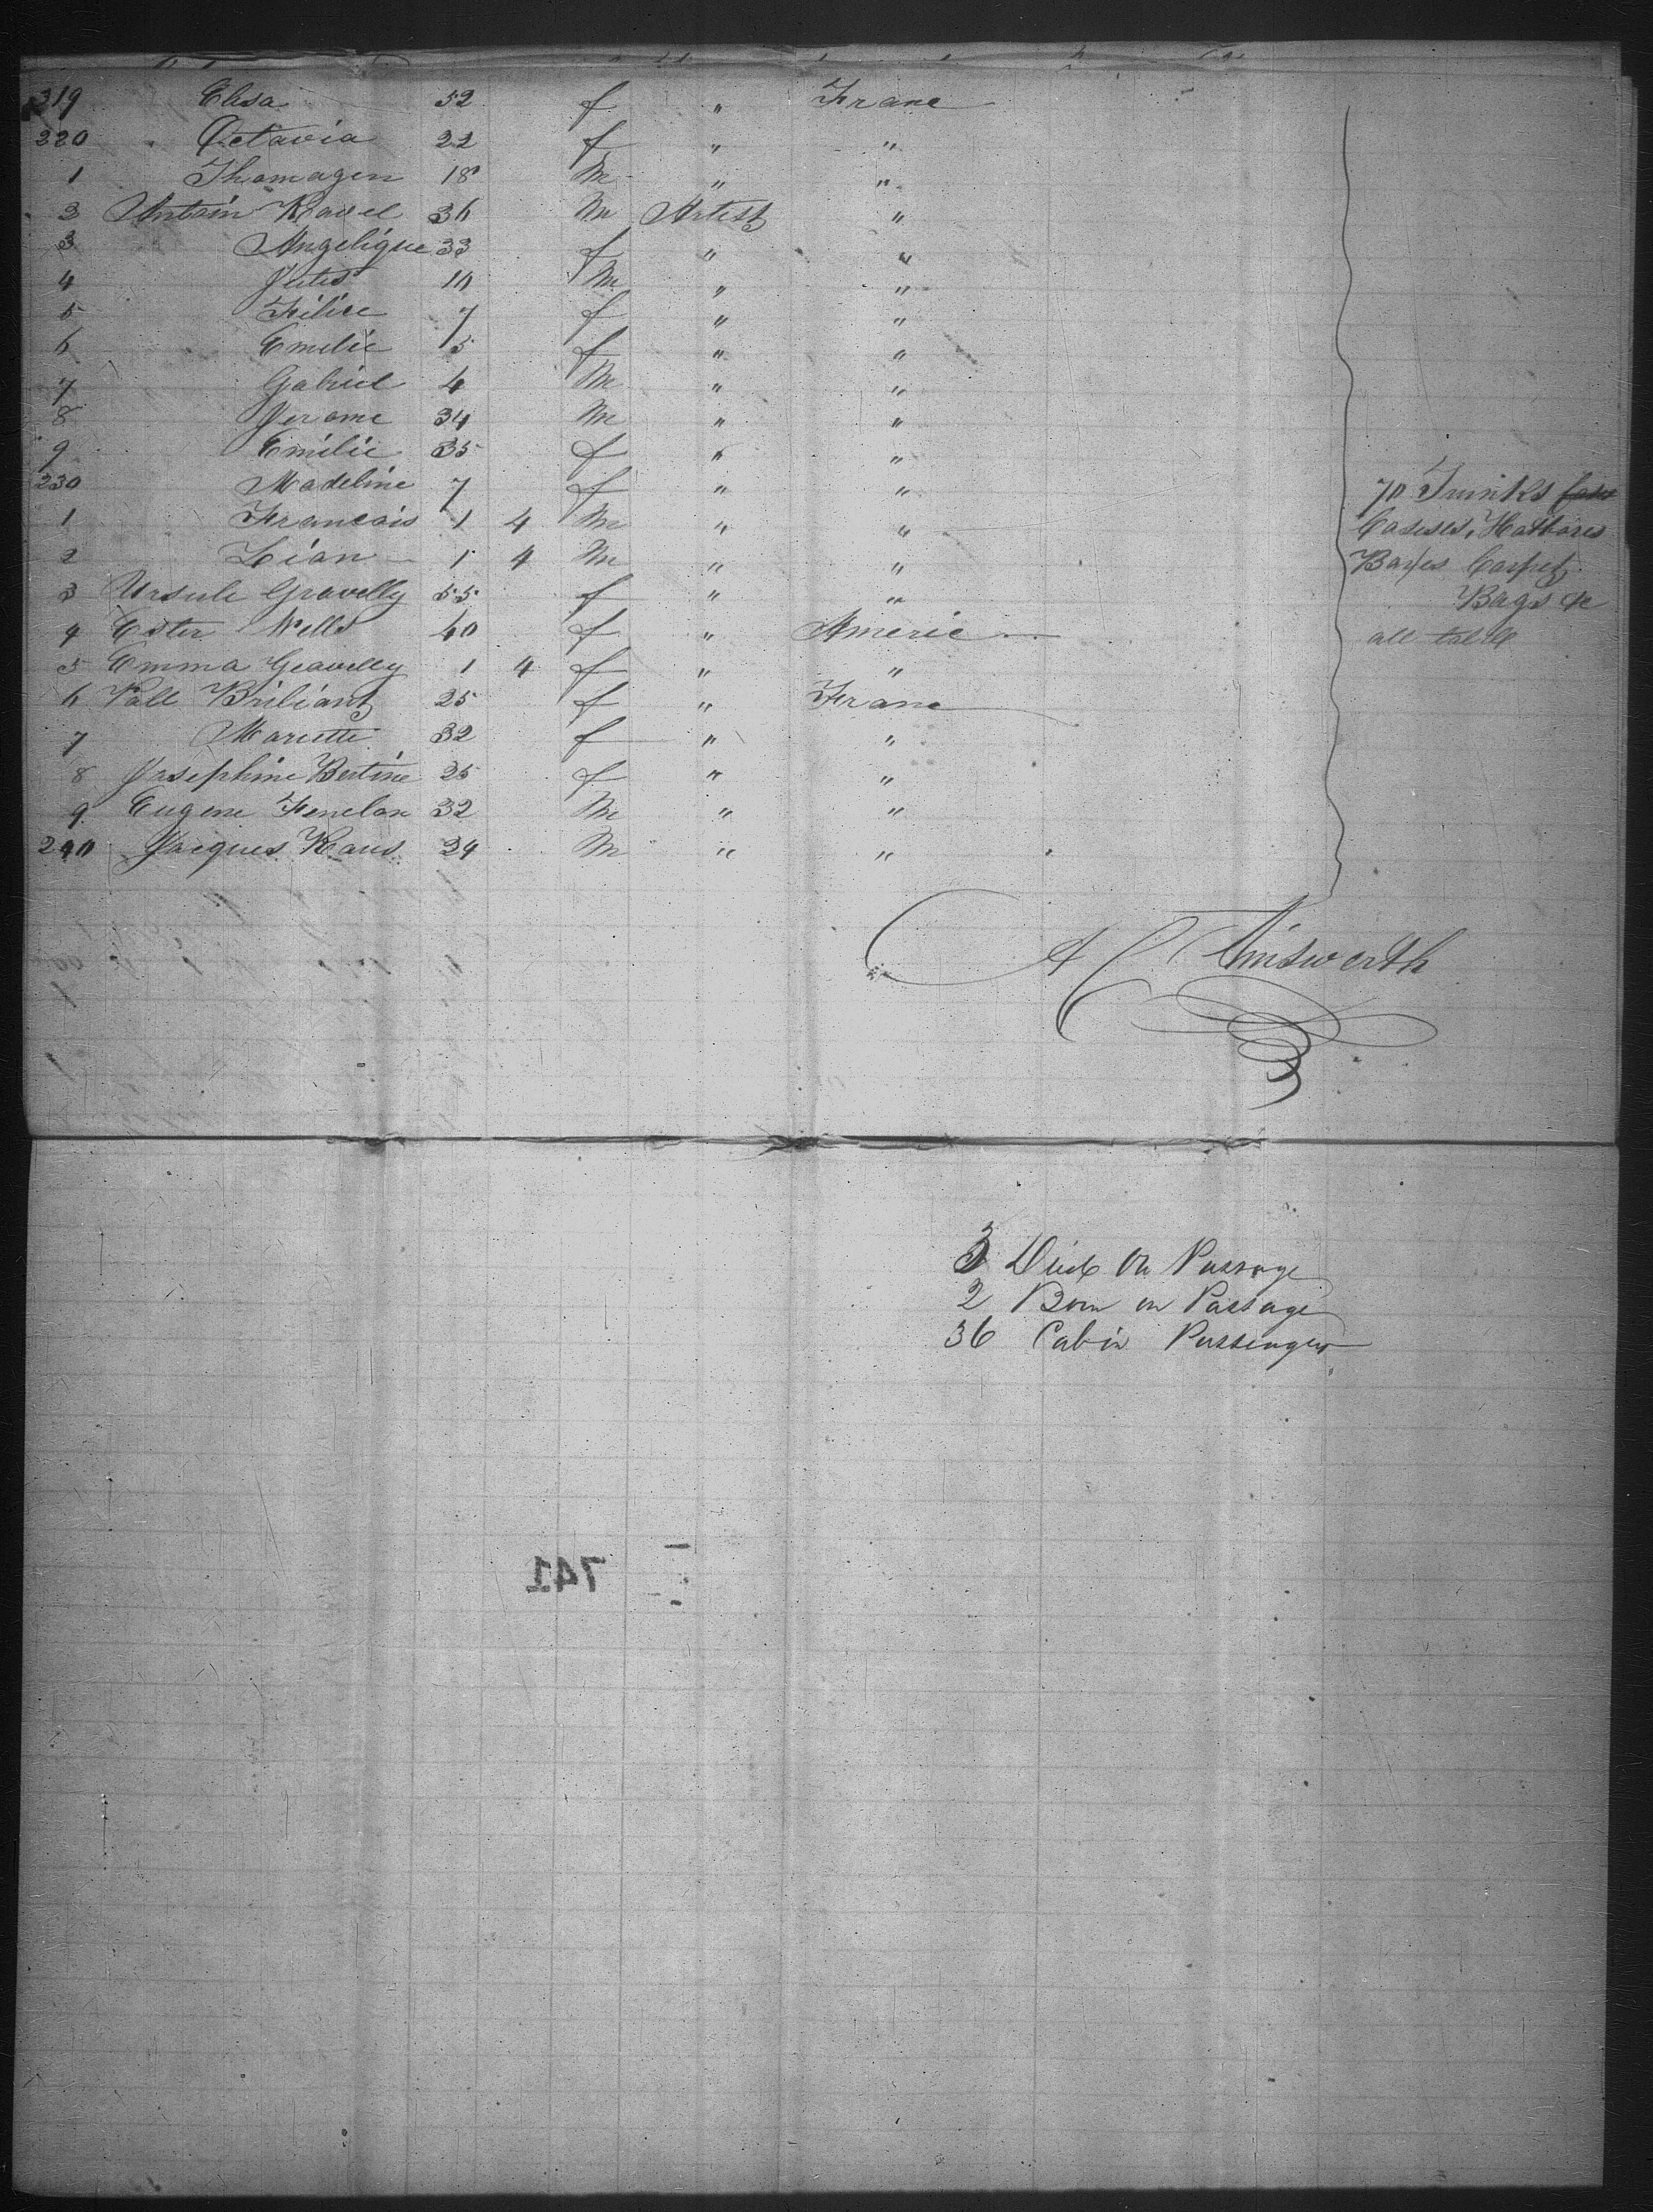 319 Elisa 52 f " Franc
220 " Octavia 22 f " "
1 Thomagen 18 M " "
2 Antoin Ravel 36 M Artist "
3 Angelique 33 f " "
4 10 M " "
5 Filise 7 f " "
6 Emilie 5 f " "
7 Gabriel 4 M " "
8 Jerome 34 M " "
9 Emilie 35 f " "
230 Madeline 7 f " "
1 Francois 1 4 M " "
2 Lian 1 4 M " "
3 Ursule Gravelly 55 f " "
4 Ester Wells 40 f " Americ
5 Emma Gravelly 1 4 f " "
6 Pall Briliant 25 f " Franc
7 Mariette 32 f " "
8 Josephine Bertine 25 f " "
9 Eugene Fenelon 32 M " "
240 Jacques 24 M " "
70 Trunks
Casses, Hatboxes
Boxes Carpet
Bags &c
all
A C Ainsworth
3 Died On Passage
2 Born on Passage
36 Cabin Passengers
741